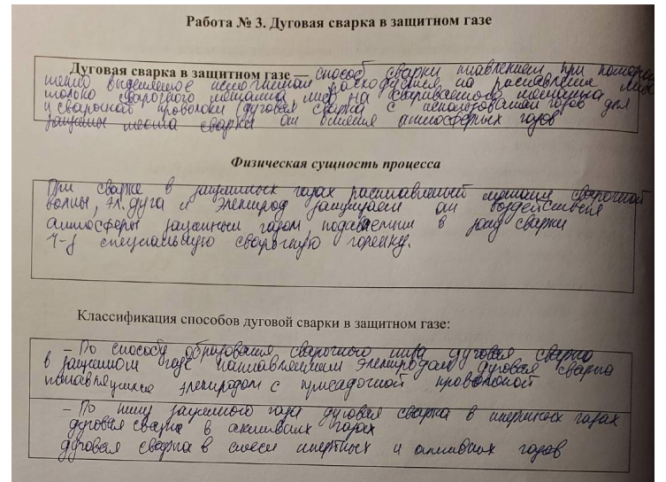 Работа № 3. Дуговая сварка в защитном газе
Дуговая сварка в защитном газе — способ сварки плавлением при котором
тепло выделяемое источником расходуется на расплавление либо
только сварочного металла либо на свариваемого металла
и сварочной проволоки (дуговая сварка с использованием газов для
защиты места сварки от влияния атмосферных газов
Физическая сущность процесса
При сварке в защитных газах расплавленный металл сварочной
ванны, эл. дуга и электрод защищают от воздействия
атмосферы защитным газом, подаваемым в зону сварки
ч-з специальную сварочную горелку.
Классификация способов дуговой сварки в защитном газе:
– По способу образования сварочного шва дуговая сварка
в защитном газе плавящимся электродом дуговая сварка
электродом с присадочной проволокой
– По типу защитного газа дуговая сварка в инертных газах
дуговая сварка в активных газах
дуговая сварка в смеси инертных и активных газов